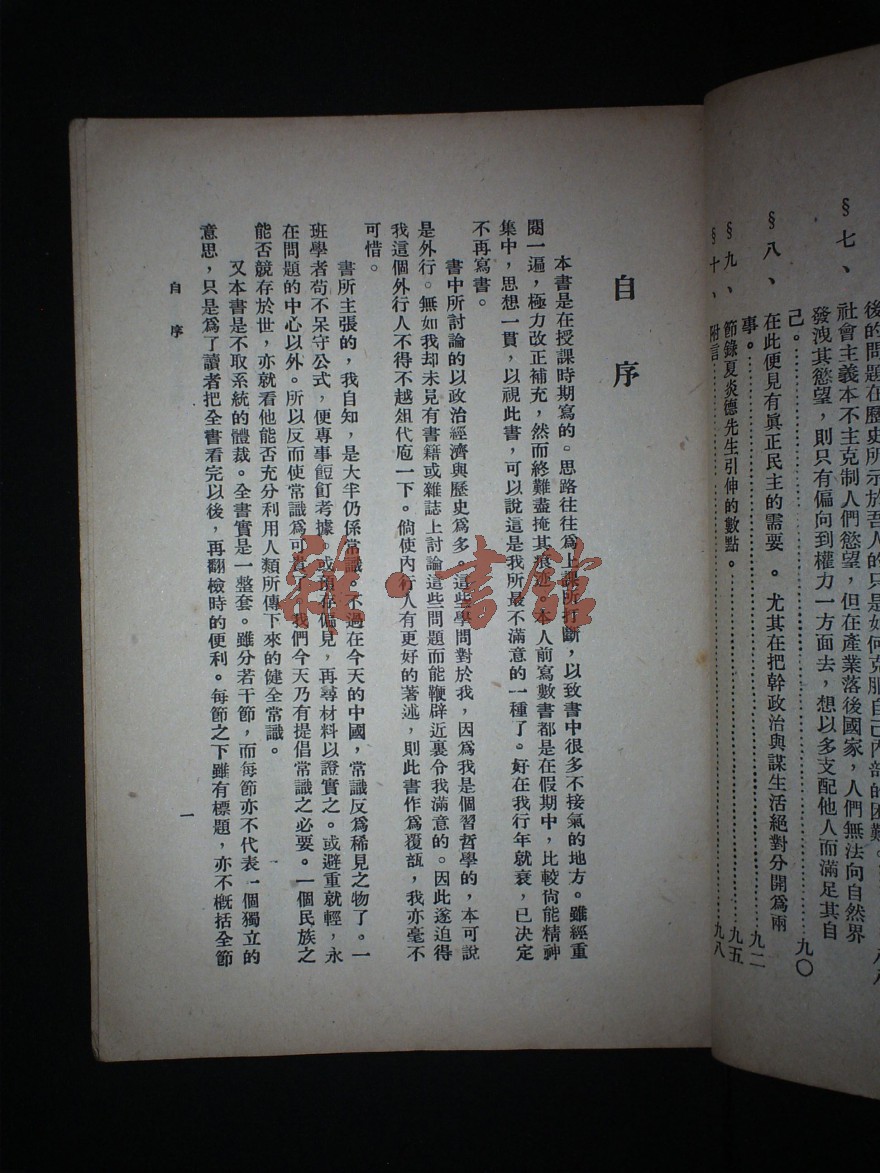 後的問題在歷史所示於吾人的只是如何克服自己內部的困難。
八八
§七、
社會主義本不主克制人們慾望，但在產業落後國家，人們無法向自然界
發洩其慾望，則只有偏向到權力一方面去，想以多支配他人而滿足其自
己。……………………九〇
§八、
在此便見有眞正民主的需要。尤其在把幹政治與謀生活絕對分開爲兩
事。……………………九二
§九、節錄夏炎德先生引伸的數點。……………………九五
§十、附言……………………九八
自序
本書是在授課時期寫的。思路往往爲上課所打斷，以致書中很多不接氣的地方。雖經重
閱一遍，極力改正補充，然而終難盡掩其痕迹。本人前寫數書都是在假期中，比較尙能精神
集中，思想一貫，以視此書，可以說這是我所最不滿意的一種了。好在我行年就衰，已決定
不再寫書。
書中所討論的以政治經濟與歷史爲多。這些學問對於我，因爲我是個習哲學的，本可說
是外行。無如我却未見有書籍或雜誌上討論這些問題而能鞭辟近裏令我滿意的。因此遂迫得
我這個外行人不得不越俎代庖一下。倘使內行人有更好的著述，則此書作爲覆瓿，我亦毫不
可惜。
書所主張的，我自知，是大半仍係常識。不過在今天的中國，常識反爲稀見之物了。一
班學者苟不呆守公式，便專事餖飣考據。或預存偏見，再尋材料以證實之。或避重就輕，永
在問題的中心以外。所以反而使常識爲可貴了。我們今天乃有提倡常識之必要。一個民族之
能否競存於世，亦就看他能否充分利用人類所傳下來的健全常識。
又本書是不取系統的體裁。全書實是一整套。雖分若干節，而每節亦不代表一個獨立的
意思，只是爲了讀者把全書看完以後，再翻檢時的便利。每節之下雖有標題，亦不槪括全節
自序
一
雜·書館